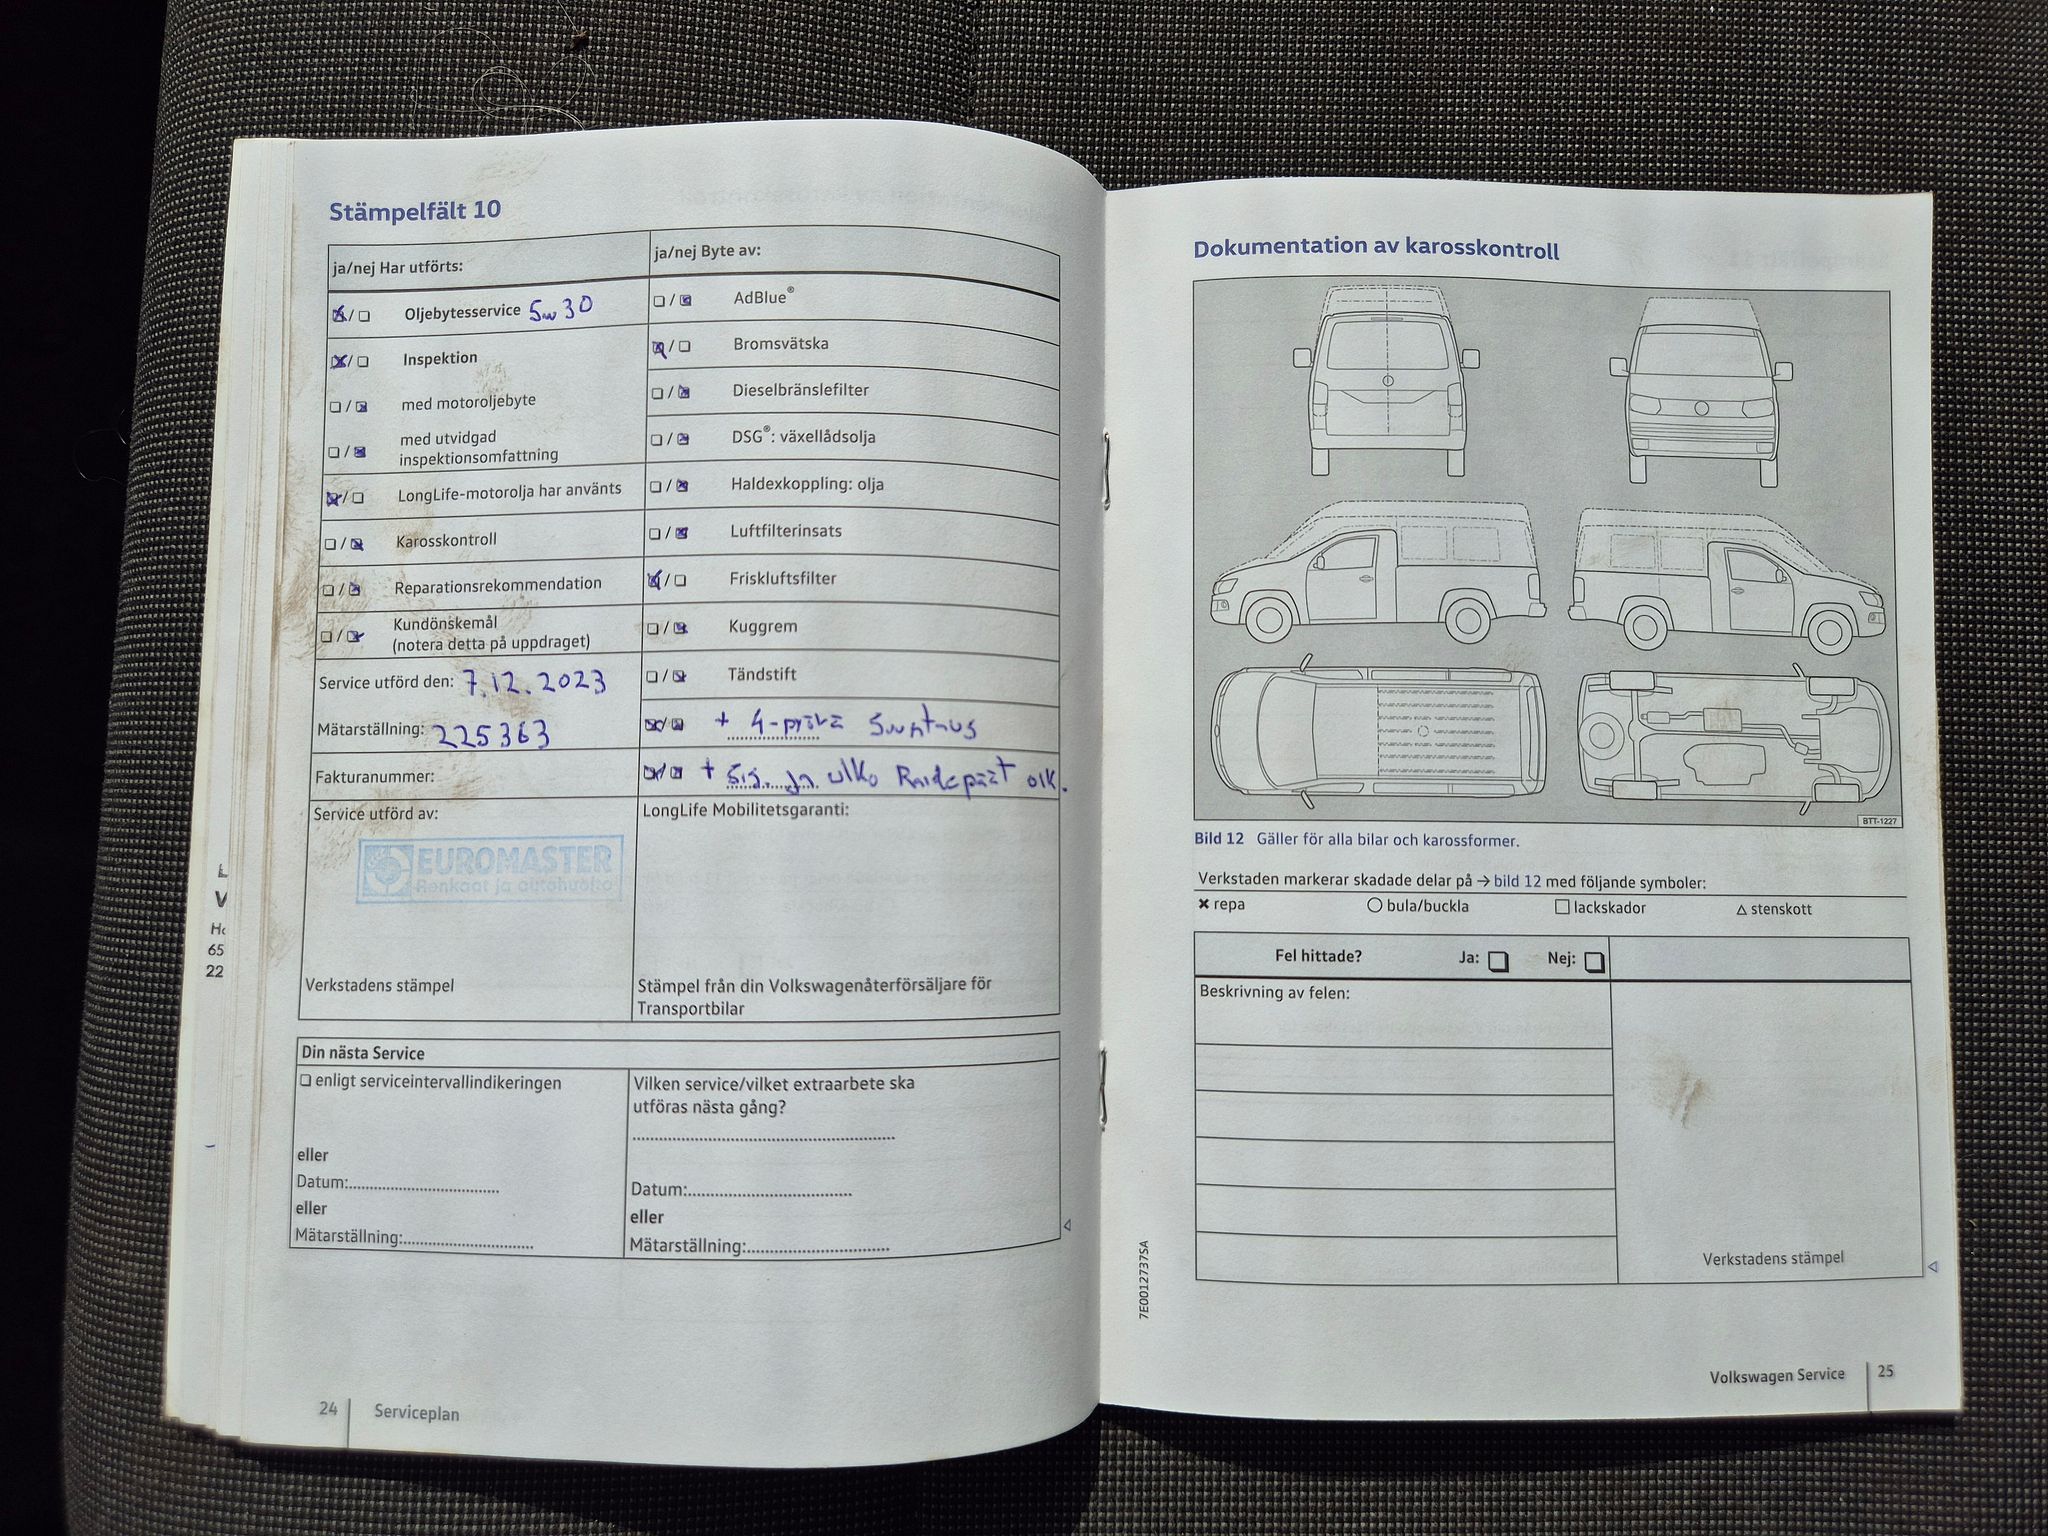 Stämpelfält 10
ja/nej Har utförts:
ja/nej Byte av:
Oljebytesservice 5w30
Inspektion
med motoroljebyte
med utvidgad
inspektionsomfattning
LongLife-motorolja har använts
Karosskontroll
Reparationsrekommendation
Kundönskemål
(notera detta på uppdraget)
Service utförd den: 7.12.2023
Mätarställning: 225363
Fakturanummer:
AdBlue®
Bromsvätska
Dieselbränslefilter
DSG®: växellådsolja
Haldexkoppling: olja
Luftfilterinsats
Friskluftsfilter
Kuggrem
Tändstift
+ 4-pyörä suuntaus
+ sis. ja ulko Raidepäät olk.
Service utförd av:
EUROMASTER
Renkaat ja autohuolto
Verkstadens stämpel
LongLife Mobilitetsgaranti:
Stämpel från din Volkswagenåterförsäljare för
Transportbilar
Din nästa Service
enligt serviceintervallindikeringen
eller
Datum:
eller
Mätarställning:
Vilken service/vilket extraarbete ska
utföras nästa gång?
Datum:
eller
Mätarställning:
24 Serviceplan
Ho
65
22
Dokumentation av karosskontroll
BTT-1227
Bild 12 Gäller för alla bilar och karossformer.
Verkstaden markerar skadade delar på → bild 12 med följande symboler:
✖ repa ○ bula/buckla □ lackskador △ stenskott
Fel hittade? Ja: Nej:
Beskrivning av felen:
Verkstadens stämpel
7E0012737SA
Volkswagen Service 25